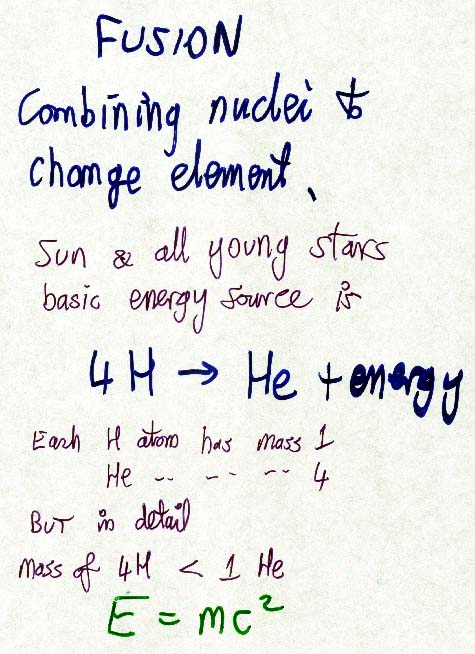 FUSION
Combining nuclei to
change element.
Sun & all young stars
basic energy source is
4H → He + energy
Each H atom has mass 1
He -- -- -- 4
BUT in detail
mass of 4H < 1 He
E = mc²